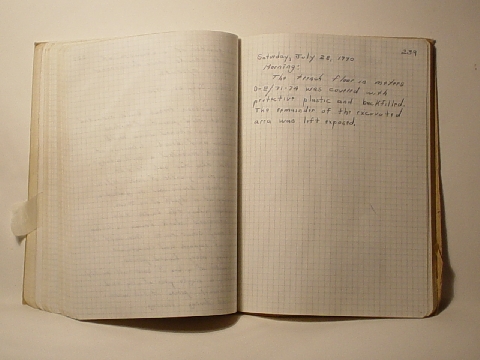 239
Saturday, July 28, 1990
Morning:
The trench floor in meters
was covered with
protective plastic and backfilled.
The remainder of the excavated
area was left exposed.